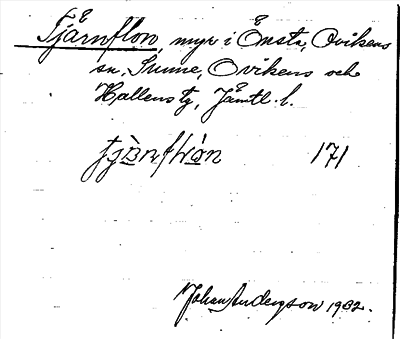 Tjärnflon, myr i Önsta, Ovikens
sn, Sunne, Ovikens och
Hallens tg, Jämtl. l.
171
Johan Anderson 1932.